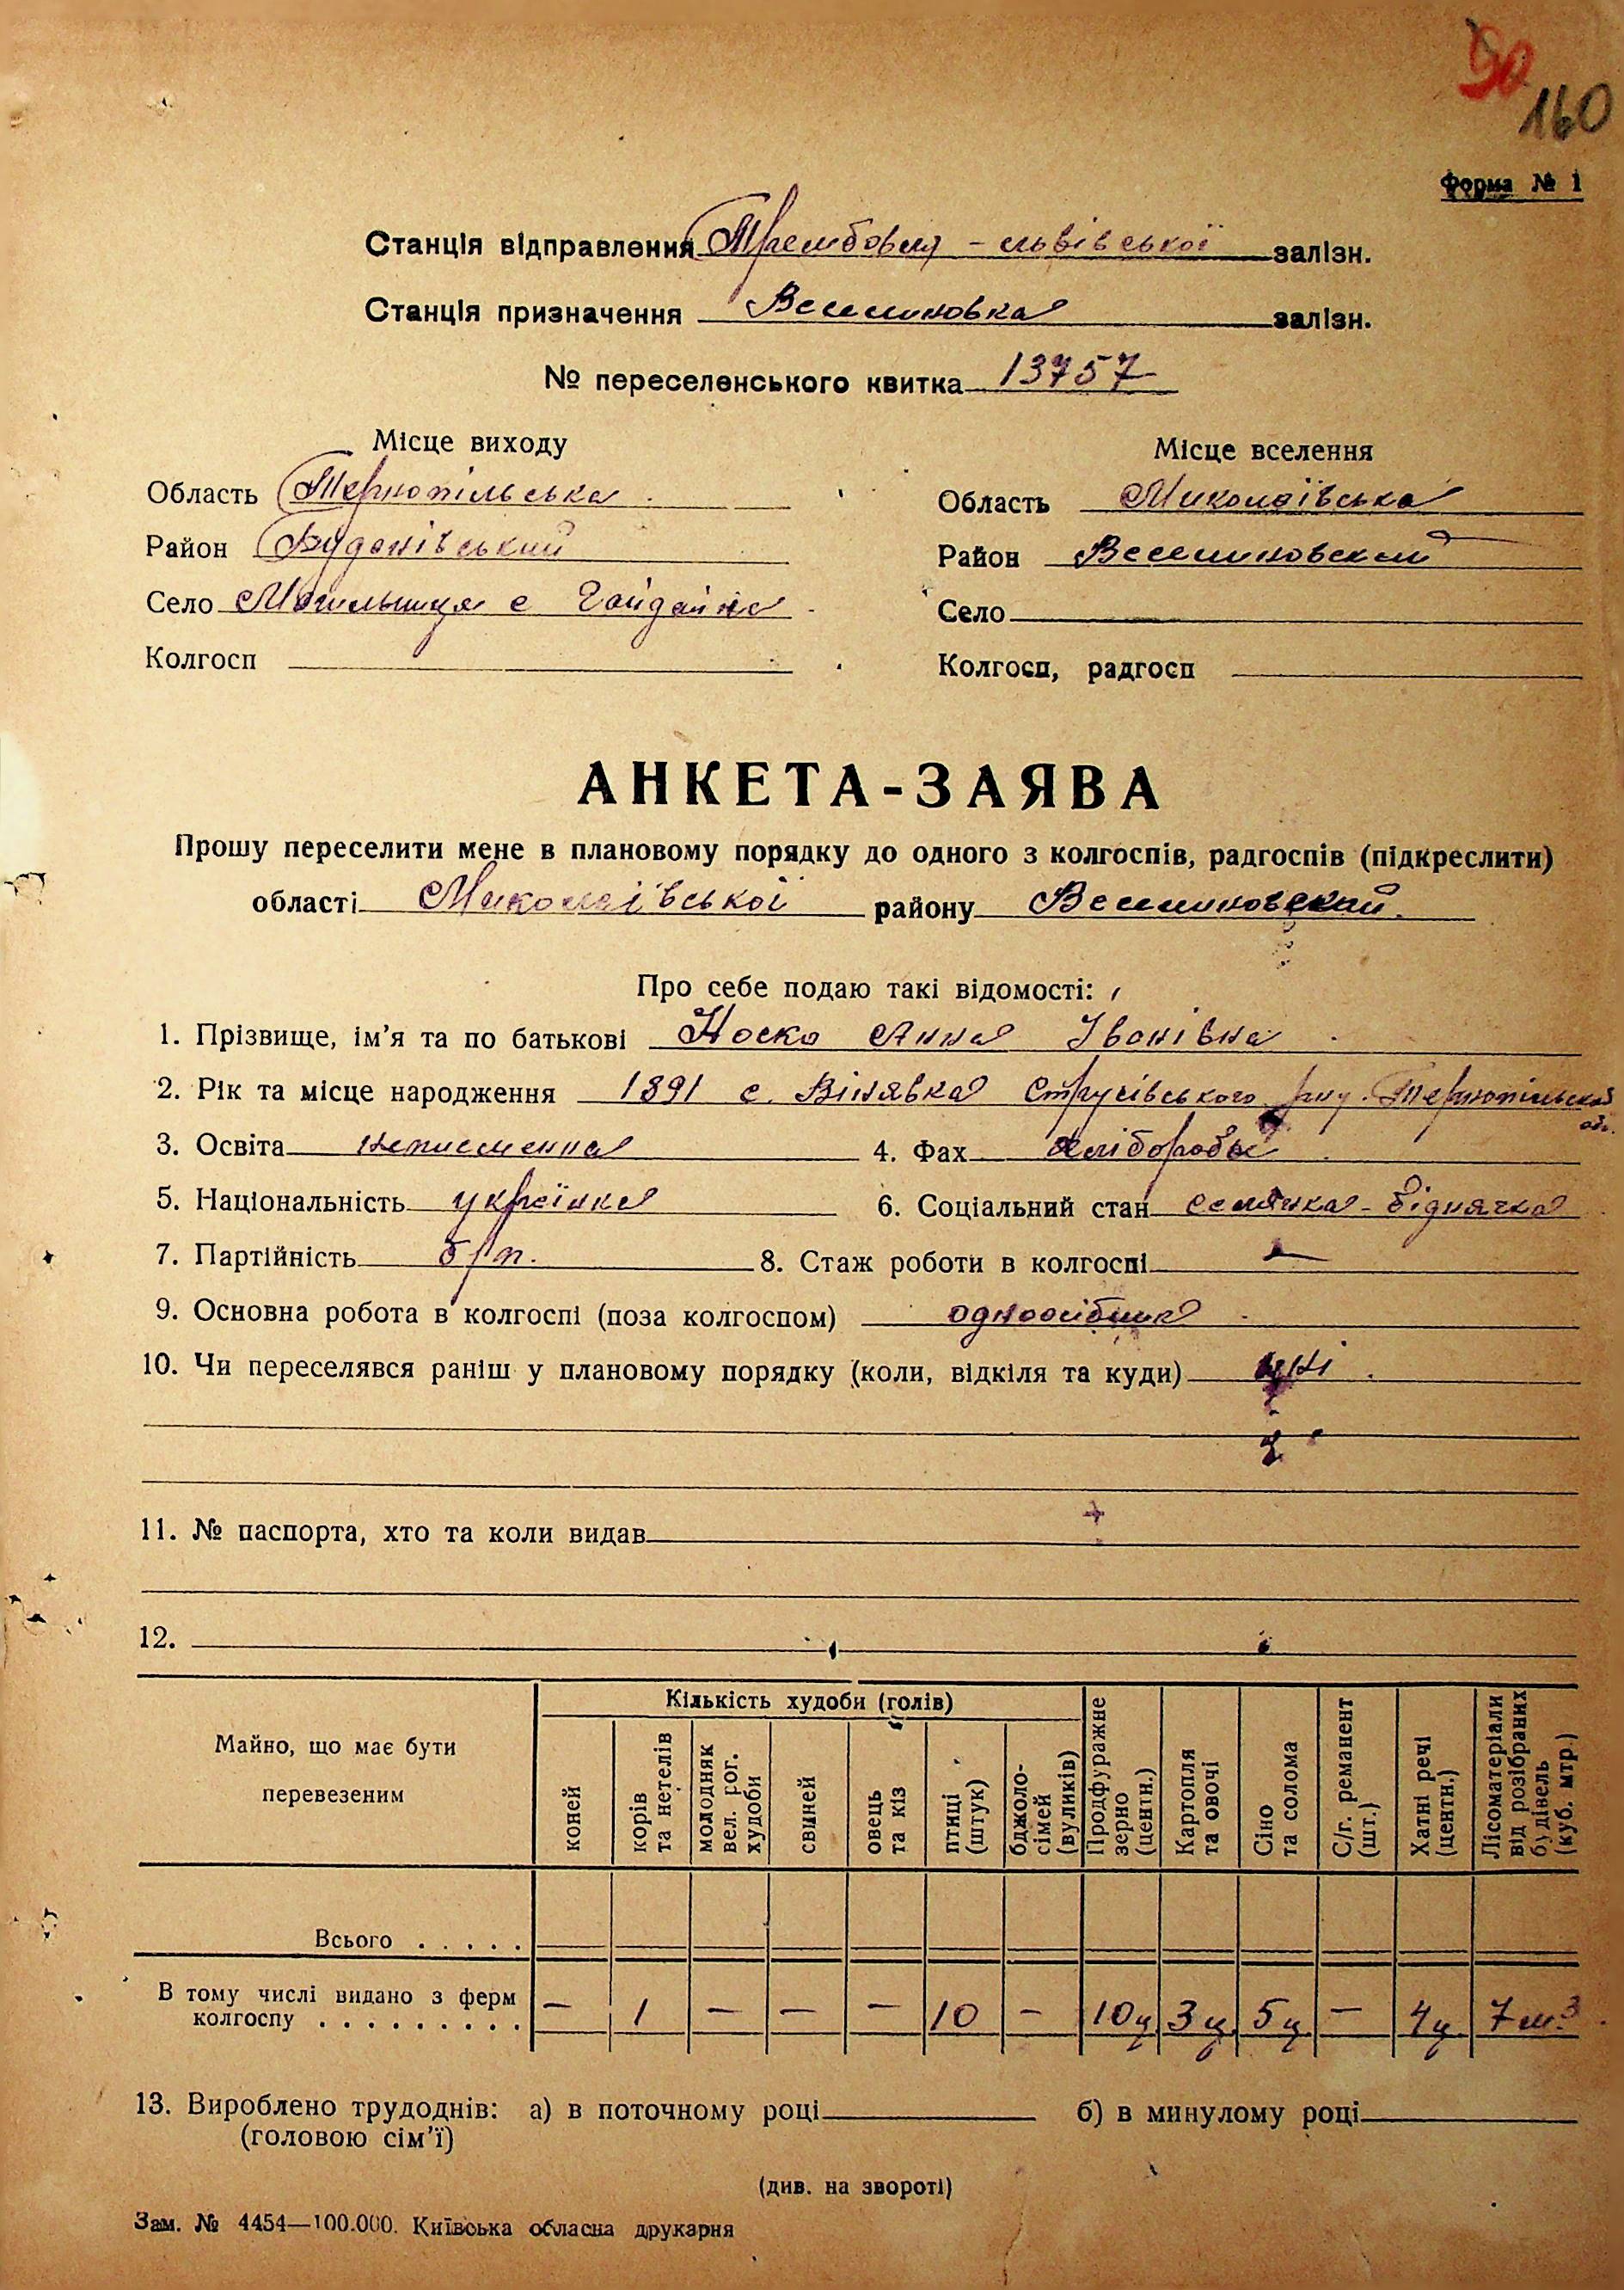 90
160
Форма № 1
Станція відправлення Трембовля - львівської залізн.
Станція призначення Веселиновка залізн.
№ переселенського квитка 13757
Місце виходу
Місце вселення
Область Тернопільська
Область Миколаївська
Район Буданівський
Район Веселиновский
Село Могильниця с
Село
Колгосп
Колгосп, радгосп
АНКЕТА-ЗАЯВА
Прошу переселити мене в плановому порядку до одного з колгоспів, радгоспів (підкреслити)
області Миколаївської району Веселиновский.
Про себе подаю такі відомості:
1. Прізвище, ім’я та по батькові Носко Анна Іванівна
2. Рік та місце народження 1891 с. Вінявка Струсівського р-ну. Тернопільской обл.
3. Освіта неписменна 4. Фах хлібороб
5. Національність українка 6. Соціальний стан селянка - біднячка
7. Партійність б/п. 8. Стаж роботи в колгоспі —
9. Основна робота в колгоспі (поза колгоспом) одноосібниця
10. Чи переселявся раніш у плановому порядку (коли, відкіля та куди) ні
11. № паспорта, хто та коли видав
12.
Майно, що має бути перевезеним
Кількість худоби (голів)
коней
корів та нетелів
молодняк вел. рог. худоби
свиней
овець та кіз
птиці (штук)
бджоло-сімей (вуликів)
Продфуражне зерно (центн.)
Картопля та овочі
Сіно та солома
С/г. реманент (шт.)
Хатні речі (центн.)
Лісоматеріали від розібраних будівель (куб. мтр.)
Всього . . . . .
В тому числі видано з ферм
колгоспу . . . . . . . . . — 1 — — — 10 — 10ц 3ц 5ц — 4ц 7м.³
13. Вироблено трудоднів: а) в поточному році б) в минулому році
(головою сім’ї)
(див. на звороті)
Зам. № 4454—100.000. Київська обласна друкарня